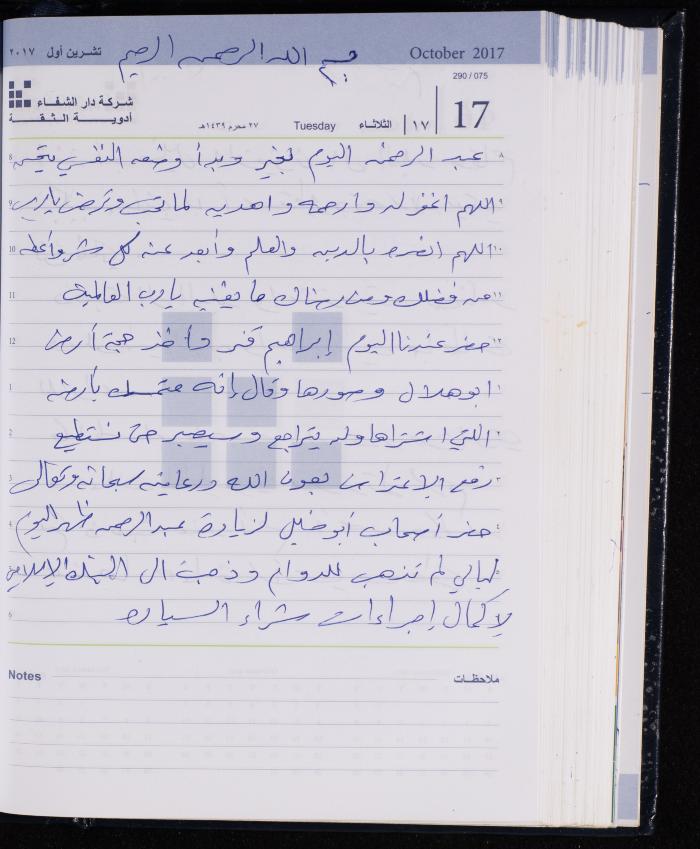 تشرين أول ٢٠١٧ بسم الله الرحمن الرحيم October 2017
290 / 075
شركة دار الشفاء
أدويـــة الـثـقـــة
٢٧ محرم ١٤٣٩هـ Tuesday الثلاثاء ١٧ 17
عبد الرحمن اليوم بخير وبدأ وضعه النفسي يتحسن
اللهم اغفر له وارحمه واهديه لما تحب وترضى يارب
اللهم انصره بالدين والعلم وأبعد عنه كل شر وأعطه
من فضلك ومن رضاك ما يغنيه يارب العالمين
حضر عندنا اليوم إبراهيم وأخذ حجة أرض
ابو هلال وصورها وقال إنه متمسك بأرضه
اللتي اشتراها ولن يتراجع وسيصبر حتى نستطيع
رفع الاعتراض بعون الله ورعايته سبحانه وتعالى
حضر أصحاب أبو خليل لزيارة عبد الرحمن ظهر اليوم
لم تذهب للدوام وذهبت الى البنك الإسلامي
لإكمال إجراءات شراء السياره
Notes ملاحظات